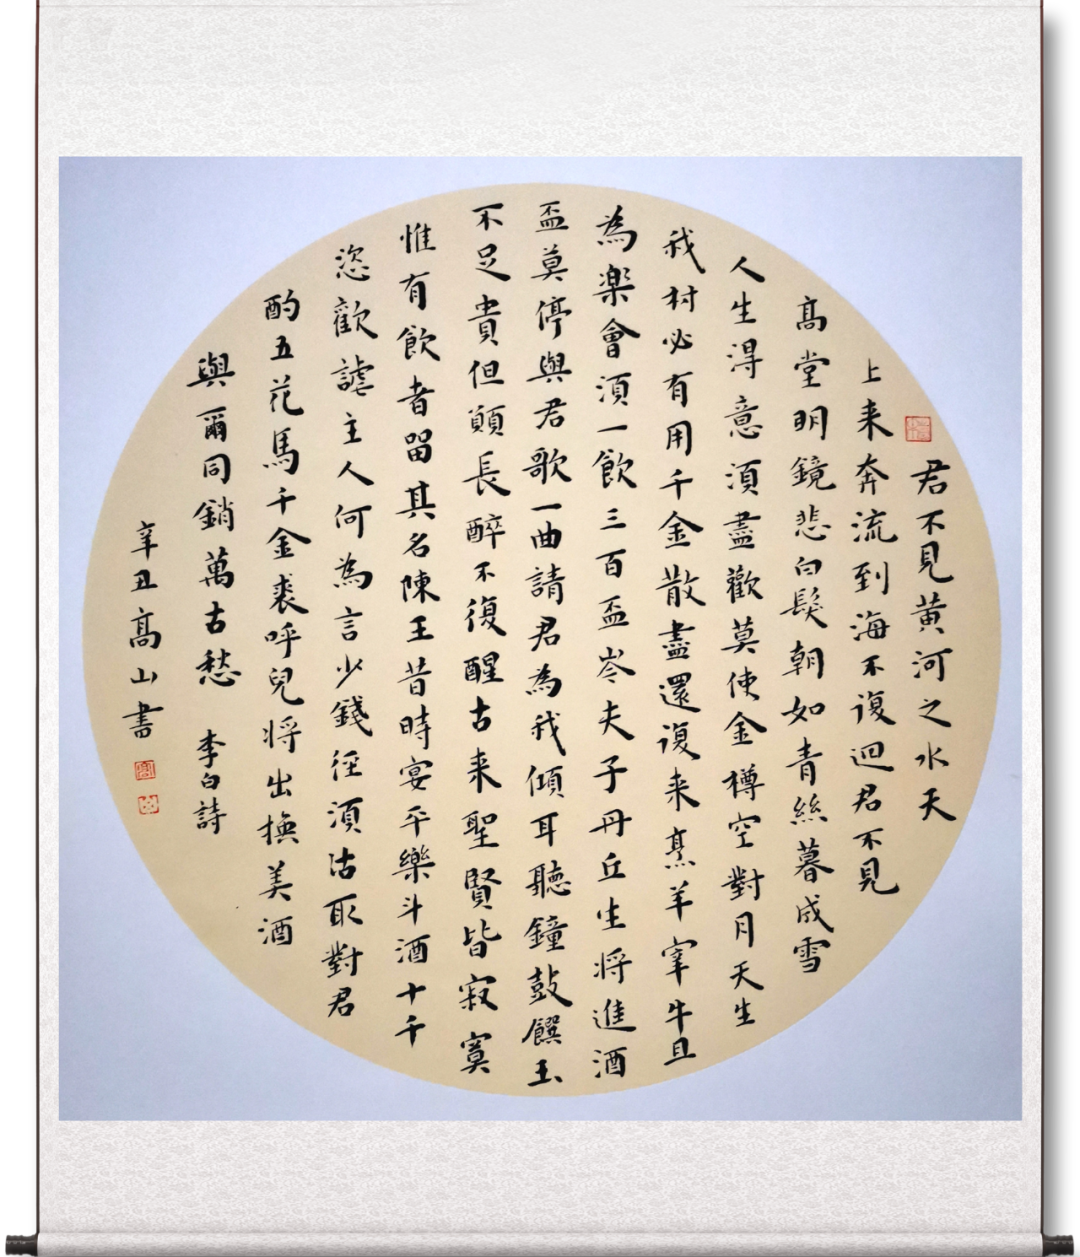 君不見黄河之水天
上来奔流到海不復迴君不見
高堂明鏡悲白髮朝如青絲暮成雪
人生得意須盡歡莫使金樽空對月天生
我材必有用千金散盡還復来烹羊宰牛且
為楽會須一飲三百盃岑夫子丹丘生将進酒
盃莫停與君歌一曲請君為我傾耳聽鐘鼓饌玉
不足貴但願長醉不復醒古来聖賢皆寂寞
惟有飲者留其名陳王昔時宴平樂斗酒十千
恣歡謔主人何為言少錢徑須沽取對君
酌五花馬千金裘呼兒将出換美酒
與爾同銷萬古愁 李白詩
辛丑高山書